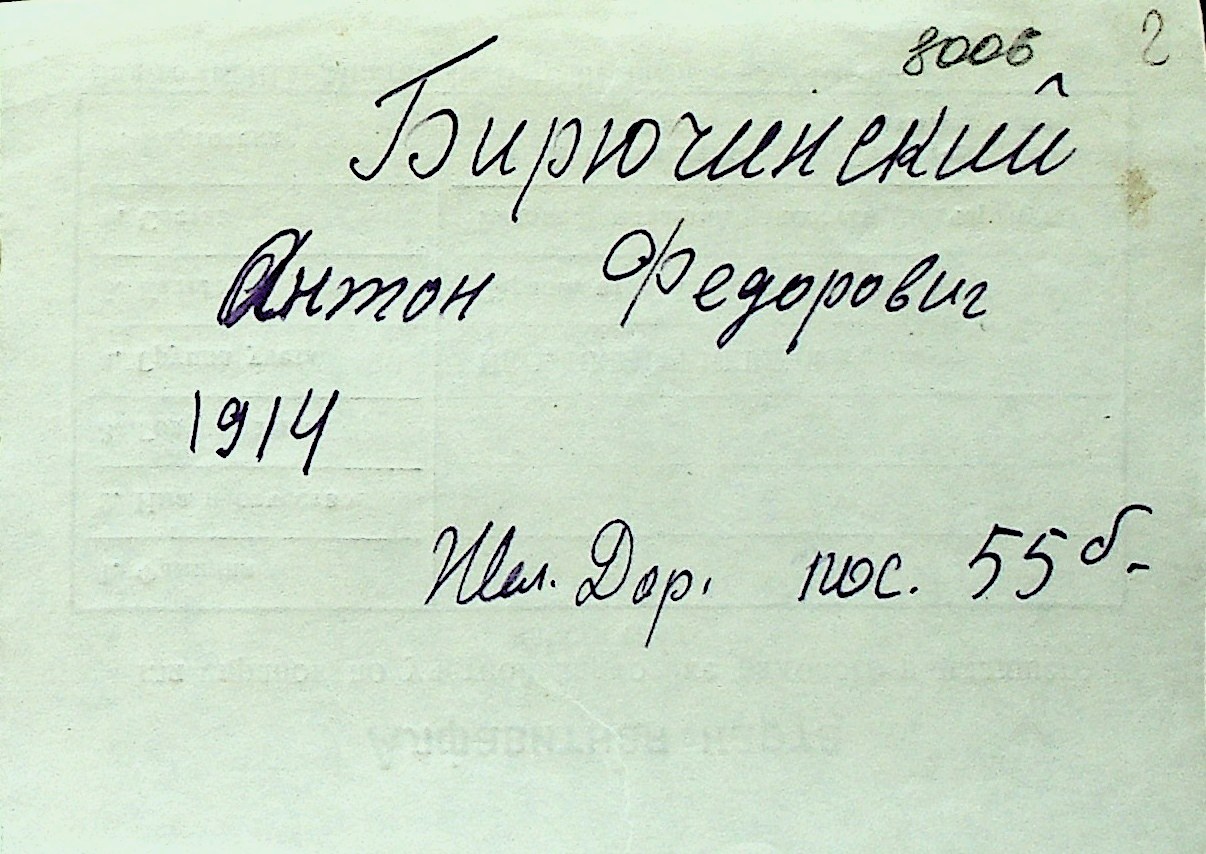 8006 2
Бирючинский
Антон Федорович
1914
Жел. Дор. пос. 55б-